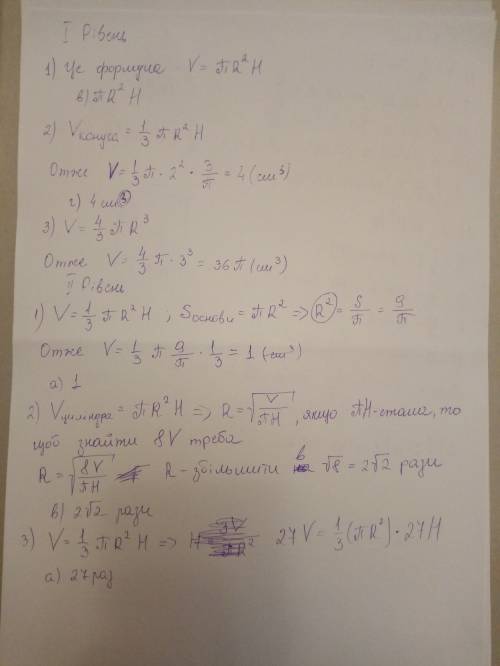 I Рівень
1) Це формула V = πR²H
в) πR²H
2) Vконуса = 1/3 πR²H
Отже V = 1/3 π · 2² · 3/π = 4 (см³)
г) 4 см³
3) V = 4/3 πR³
Отже V = 4/3 π · 3³ = 36π (см³)
II Рівень
1) V = 1/3 πR²H ; Sоснови = πR² => R² = S/π = 9/π
Отже V = 1/3 π 9/π · 1/3 = 1 (см³)
а) 1
2) Vциліндра = πR²H => R = √(V/πH), якщо πH-стала, то
щоб знайти 8V треба
R = √(8V/πH) R - збільшити в √8 = 2√2 рази
в) 2√2 рази
3) V = 1/3 πR²H => 27V = 1/3 (πR²) · 27H
а) 27 раз